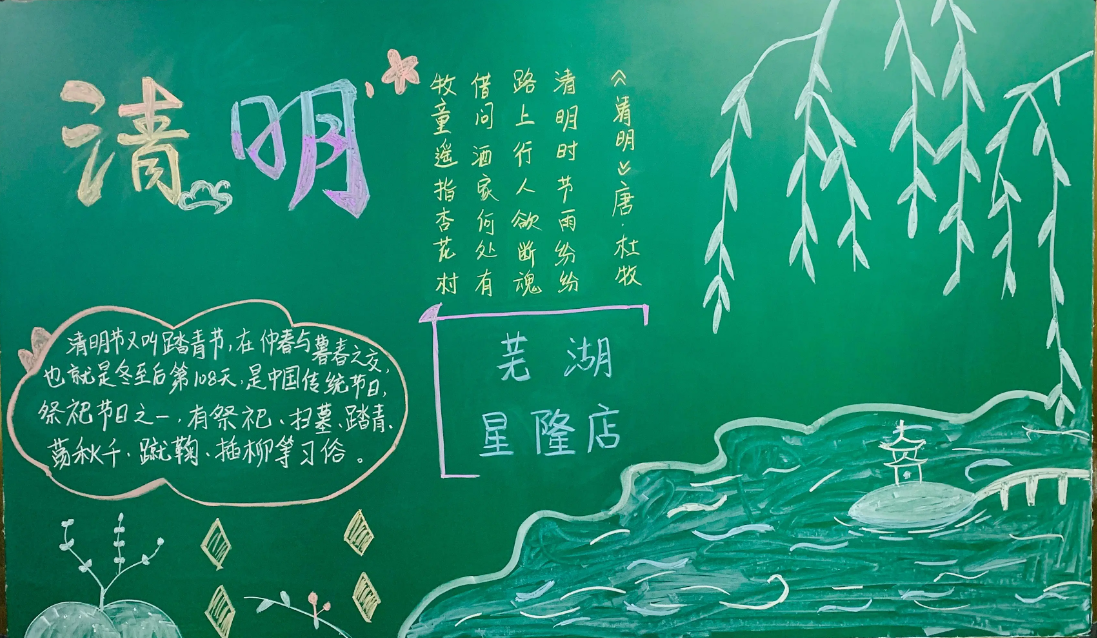 清明
《清明》唐·杜牧
清明时节雨纷纷
路上行人欲断魂
借问酒家何处有
牧童遥指杏花村
芜湖
星隆店
清明节又叫踏青节,在仲春与暮春之交,
也就是冬至后第108天,是中国传统节日,
祭祀节日之一,有祭祀、扫墓、踏青、
荡秋千、蹴鞠、插柳等习俗。